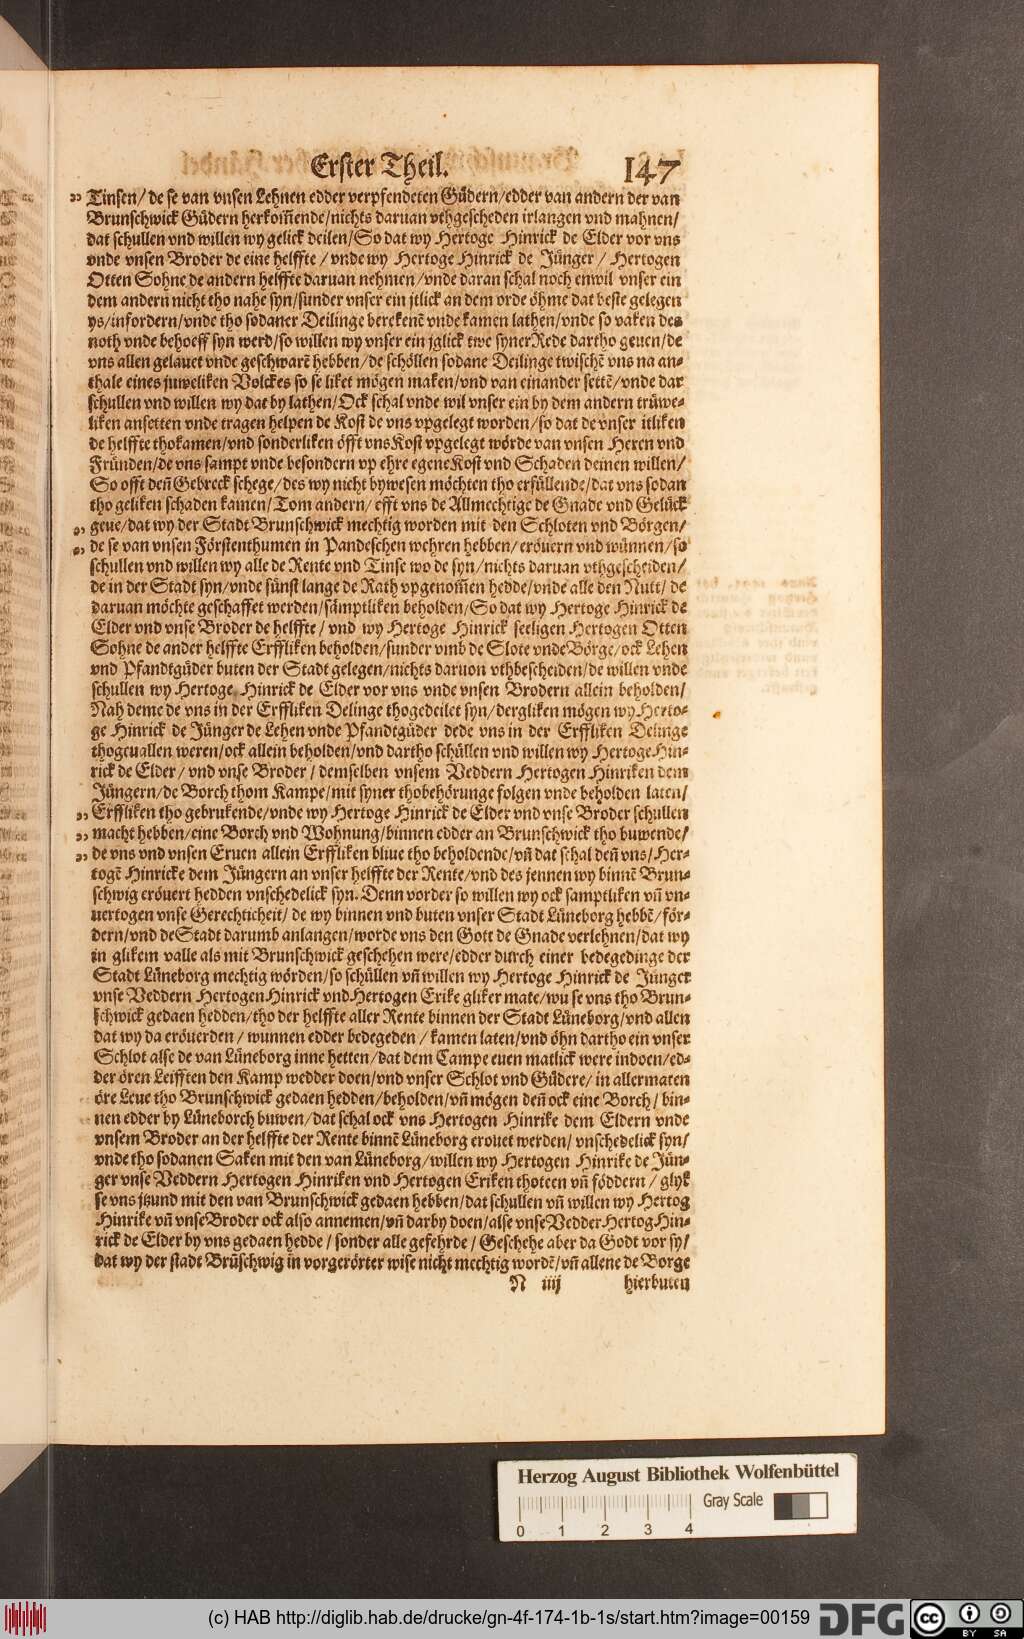 Erster Theil. 147
Tinsen / de se van vnsen Lehnen edder verpfendeten Güdern/edder van andern der van
Brunschwick Güdern herkom̃ende/nichts daruan vthgescheden irlangen vnd mahnen/
dat schullen vnd willen wy gelick deilen/So dat wy Hertoge Hinrick de Elder vor vns
vnde vnsen Broder de eine helffte / vnde wy Hertoge Hinrick de Jünger / Hertogen
Otten Sohne de andern helffte daruan nehmen / vnde daran schal noch enwil vnser ein
dem andern nicht tho nahe syn/sunder vnser ein itlick an dem orde öhme dat beste gelegen
ys/infordern/vnde tho sodaner Deilinge berekenẽ vnde kamen lathen/vnde so vaken des
noth vnde behoeff syn werd/so willen wy vnser ein jglick twe syner Rede dartho geuen/de
vns allen gelauet vnde geschwarẽ hebben/de schöllen sodane Deilinge twischẽ vns na an-
thale eines juweliken Volckes so se liket mögen maken/vnd van einander settẽ/vnde dar
schullen vnd willen wy dat by lathen/Ock schal vnde wil vnser ein by dem andern trüwe-
liken ansetten vnde tragen helpen de Kost de vns vpgelegt worden/so dat de vnser itliken
de helffte thokamen/vnd sonderliken öfft vns Kost vpgelegt wörde van vnsen Heren vnd
Fründen/de vns sampt vnde besondern vp ehre egene Kost vnd Schaden deinen willen/
So offt deñ Gebreck schege/des wy nicht bywesen möchten tho erfüllende/dat vns sodan
tho geliken schaden kamen/Tom andern/ efft vns de Allmechtige de Gnade vnd Gelück
geue/dat wy der Stadt Brunschwick mechtig worden mit den Schloten vnd Börgen/
de se van vnsen Förstenthumen in Pandeschen wehren hebben/ eröuern vnd wünnen/so
schullen vnd willen wy alle de Rente vnd Tinse wo de syn/nichts daruan vthgescheiden/
de in der Stadt syn/vnde sünst lange de Rath vpgenom̃en hedde/vnde alle den Nutt/ de
daruan möchte geschaffet werden/sämptliken beholden/So dat wy Hertoge Hinrick de
Elder vnd vnse Broder de helffte / vnd wy Hertoge Hinrick seeligen Hertogen Otten
Sohne de ander helffte Erffliken beholden/sunder vmb de Slote vnde Börge/ock Lehen
vnd Pfandtgüder buten der Stadt gelegen/nichts daruon vthbescheiden/de willen vnde
schullen wy Hertoge Hinrick de Elder vor vns vnde vnsen Brodern allein beholden/
Nah deme de vns in der Erffliken Delinge thogedeilet syn/dergliken mögen wy Herto-
ge Hinrick de Jünger de Lehen vnde Pfandtgüder dede vns in der Erffliken Delinge
thogeuallen weren/ock allein beholden/vnd dartho schüllen vnd willen wy Hertoge Hin-
rick de Elder / vnd vnse Broder / demselben vnsem Veddern Hertogen Hinriken dem
Jüngern/de Borch thom Kampe/mit syner thobehörunge folgen vnde beholden laten/
Erffliken tho gebrukende/vnde wy Hertoge Hinrick de Elder vnd vnse Broder schullen
macht hebben/eine Borch vnd Wohnung/binnen edder an Brunschwick tho buwende/
de vns vnd vnsen Eruen allein Erffliken bliue tho beholdende/vñ dat schal deñ vns/Her-
togẽ Hinricke dem Jüngern an vnser helffte der Rente/vnd des jennen wy binnẽ Brun-
schwig eröuert hedden vnschedelick syn. Denn vorder so willen wy ock samptliken vñ vn-
uertogen vnse Gerechticheit/ de wy binnen vnd buten vnser Stadt Lüneborg hebbẽ/för-
dern/vnd de Stadt darumb anlangen/worde vns den Gott de Gnade verlehnen/dat wy
in glikem valle als mit Brunschwick geschehen were/edder durch einer bedegedinge der
Stadt Lüneborg mechtig wörden/so schüllen vñ willen wy Hertoge Hinrick de Jünger
vnse Veddern Hertogen Hinrick vnd Hertogen Erike gliker mate/wu se vns tho Brun-
schwick gedaen hedden/tho der helffte aller Rente binnen der Stadt Lüneborg/vnd allen
dat wy da eröuerden / wunnen edder bedegeden / kamen laten/vnd öhn dartho ein vnser
Schlot alse de van Lüneborg inne hetten/dat dem Campe euen matlick were indoen/ed-
der ören Leifften den Kamp wedder doen/vnd vnser Schlot vnd Güdere/ in allermaten
öre Leue tho Brunschwick gedaen hedden/beholden/vñ mögen deñ ock eine Borch / bin-
nen edder by Lüneborch buwen/dat schal ock vns Hertogen Hinrike dem Eldern vnde
vnsem Broder an der helffte der Rente binnẽ Lüneborg erouet werden/ vnschedelick syn/
vnde tho sodanen Saken mit den van Lüneborg/willen wy Hertogen Hinrike de Jün-
ger vnse Veddern Hertogen Hinriken vnd Hertogen Eriken thoteen vñ föddern / glyk
se vns jtzund mit den van Brunschwick gedaen hebben/dat schullen vñ willen wy Hertog
Hinrike vñ vnse Broder ock also annemen/vñ darby doen/alse vnse Vedder Hertog Hin-
rick de Elder by vns gedaen hedde / sonder alle gefehrde / Geschehe aber da Godt vor sy/
dat wy der stadt Brüschwig in vorgerörter wise nicht mechtig wordẽ/vñ allene de Borge
N iiij hierbuten
Herzog August Bibliothek Wolfenbüttel
Gray Scale
0 1 2 3 4
(c) HAB http://diglib.hab.de/drucke/gn-4f-174-1b-1s/start.htm?image=00159 DFG cc BY SA